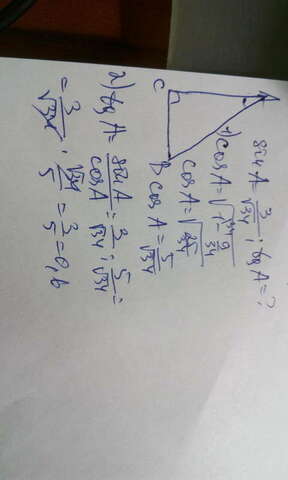 sin A = 3/√34 ; tg A = ?
A
C
B
1) cos A = √(1 - 9/34)
cos A = √(25/34)
cos A = 5/√34
2) tg A = sin A / cos A = 3/√34 : 5/√34 =
= 3/√34 · √34/5 = 3/5 = 0,6